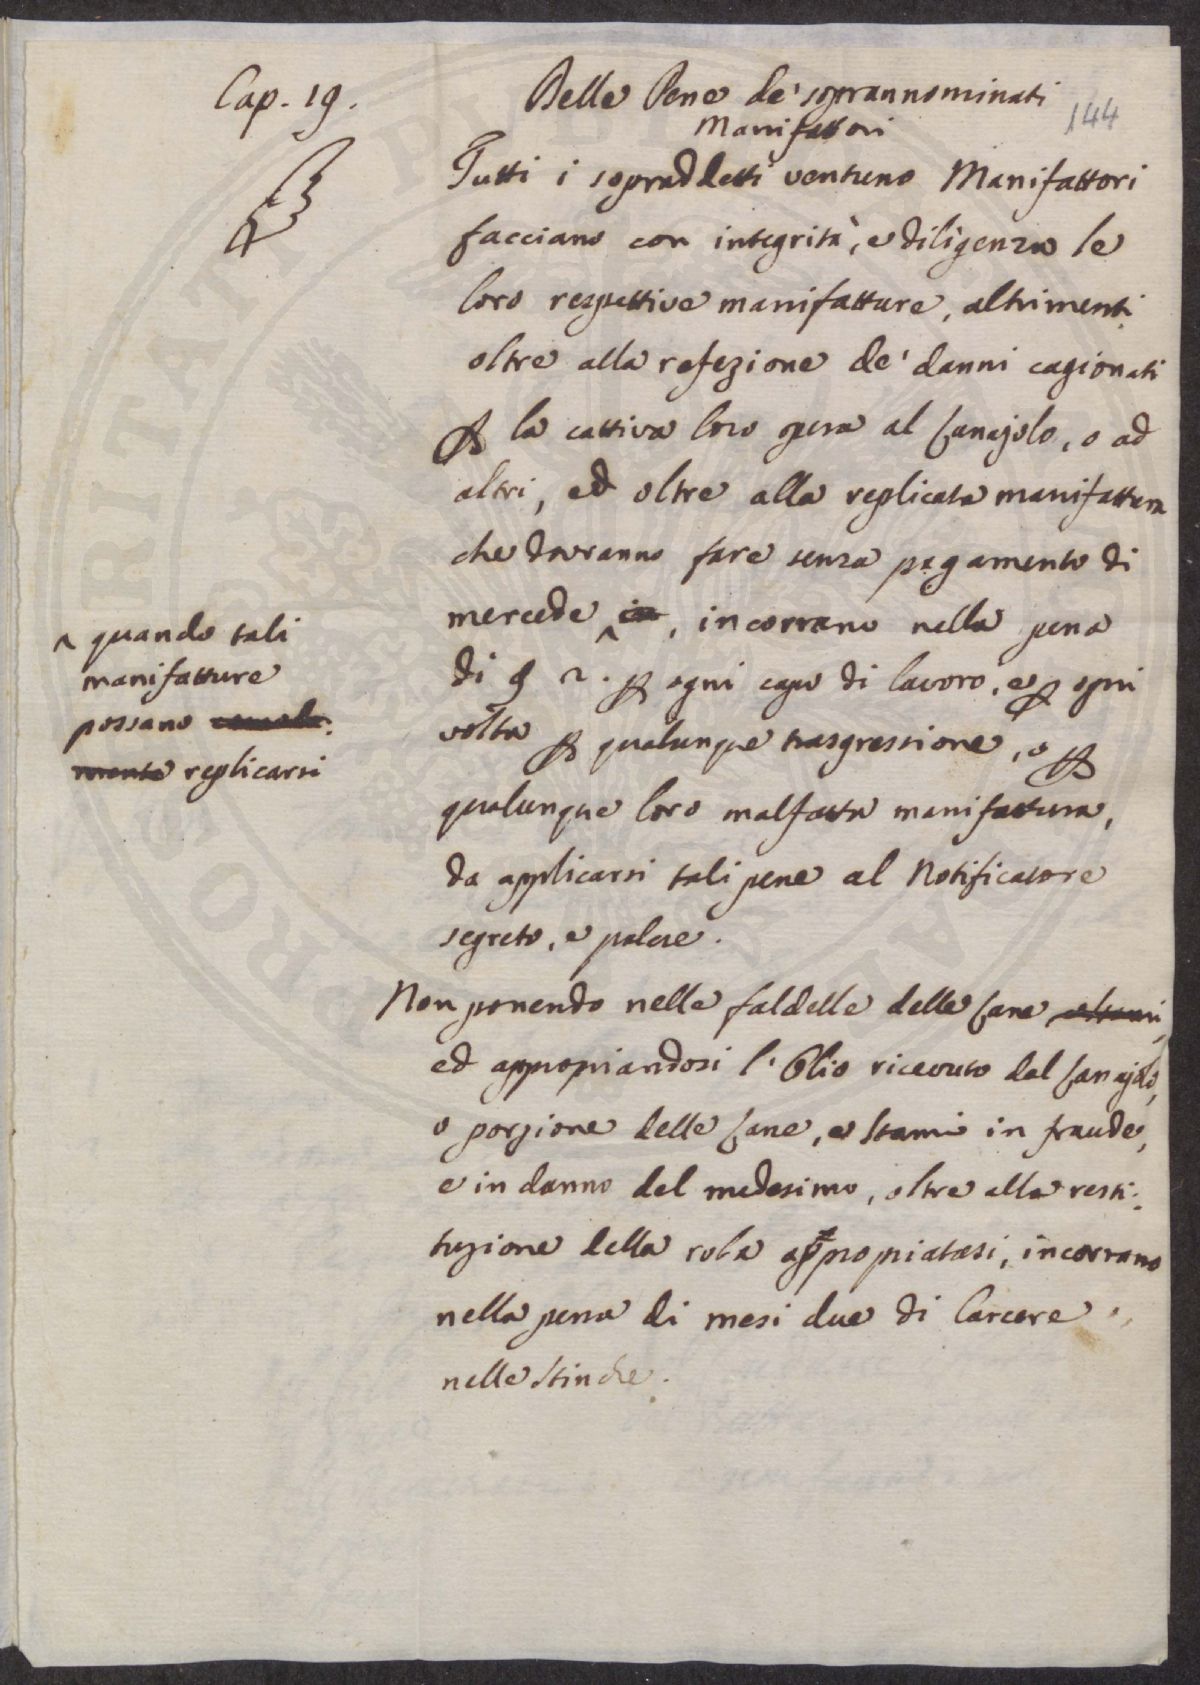 Cap. 19.
Delle Pene de' soprannominati
Manifattori
144
Tutti i sopraddetti ventuno Manifattori
facciano con integrità, e diligenza le
loro respettive manifatture, altrimenti
oltre alla refezione de' danni cagionati
la cattiva loro opera al Lanajolo, o ad
altri, ed oltre alla replicata manifattura
che dovranno fare senza pagamento di
mercede ^ in, incorrano nella pena
^ quando tali
manifatture
possano comoda:
mente replicarsi
di 2. ogni capo di lavoro, e ogni
volta qualunque trasgressione, o
qualunque loro malfatta manifattura,
da applicarsi tali pene al Notificatore
segreto, e palese.
Non ponendo nelle faldelle delle Lane
ed appropriandosi l'Olio ricevuto dal Lanajolo,
o porzione delle Lane, e Stami in fraude,
e in danno del medesimo, oltre alla resti:
tuzione della roba appropriatasi, incorrano
nella pena di mesi due di Carcere
nelle Stinche.